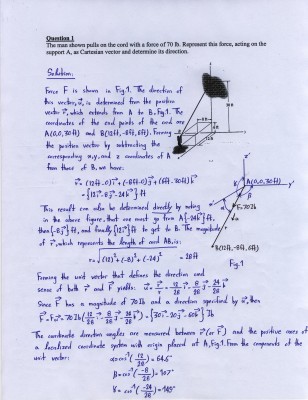 Question 1
The man shown pulls on the cord with a force of 70 lb. Represent this force, acting on the
support A, as Cartesian vector and determine its direction.
Solution:
Force F is shown in Fig.1. The direction of
this vector, u, is determined from the position
vector r, which extends from A to B, Fig.1. The
coordinates of the end points of the cord are
A(0,0,30ft) and B(12ft,-8ft,6ft). Forming
the position vector by subtracting the
corresponding x,y, and z coordinates of A
from those of B, we have:
r = (12ft-0)i + (-8ft-0)j + (6ft-30ft)k
= {12i-8j-24k} ft
This result can also be determined directly by noting
in the above figure, that one must go from A {-24k} ft,
then {-8j} ft, and finally {12i} ft to get to B. The magnitude
of r, which represents the length of cord AB, is:
r = √(12)²+(-8)²+(-24)² = 28ft
Forming the unit vector that defines the direction and
sense of both r and F yields: u = r/r = 12/28 i - 8/28 j - 24/28 k
Since F has a magnitude of 70lb and a direction specified by u, then
F = Fu = 70lb (12/28 i - 8/28 j - 24/28 k) = {30i-20j-60k} lb
The coordinate direction angles are measured between r (or F) and the positive axes of
a localized coordinate system with origin placed at A, Fig.1. From the components of the
unit vector:
α = cos⁻¹(12/28) = 64.6°
β = cos⁻¹(-8/28) = 107°
γ = cos⁻¹(-24/28) = 149°
30 ft
8 ft
6 ft
z'
A(0,0,30ft)
y'
F=70lb
B(12ft,-8ft,6ft)
Fig.1